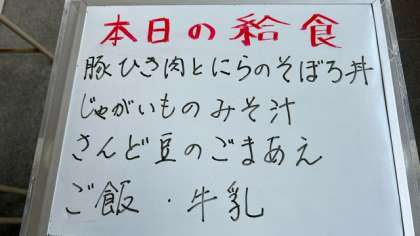 本日の給食
豚ひき肉とにらのそぼろ丼
じゃがいものみそ汁
さんど豆のごまあえ
ご飯・牛乳